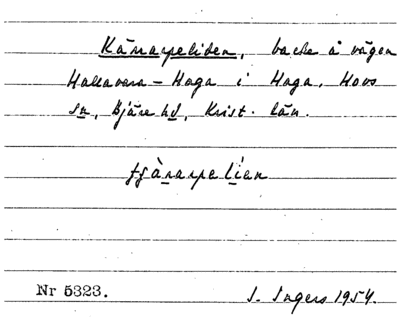 Känarpeliden, backe å vägen
Hallavara - Haga i Haga, Hovs
sn, Bjäre hd, Krist. län.
tjànarpelíen
Nr 5323.
I. Ingers 1954.